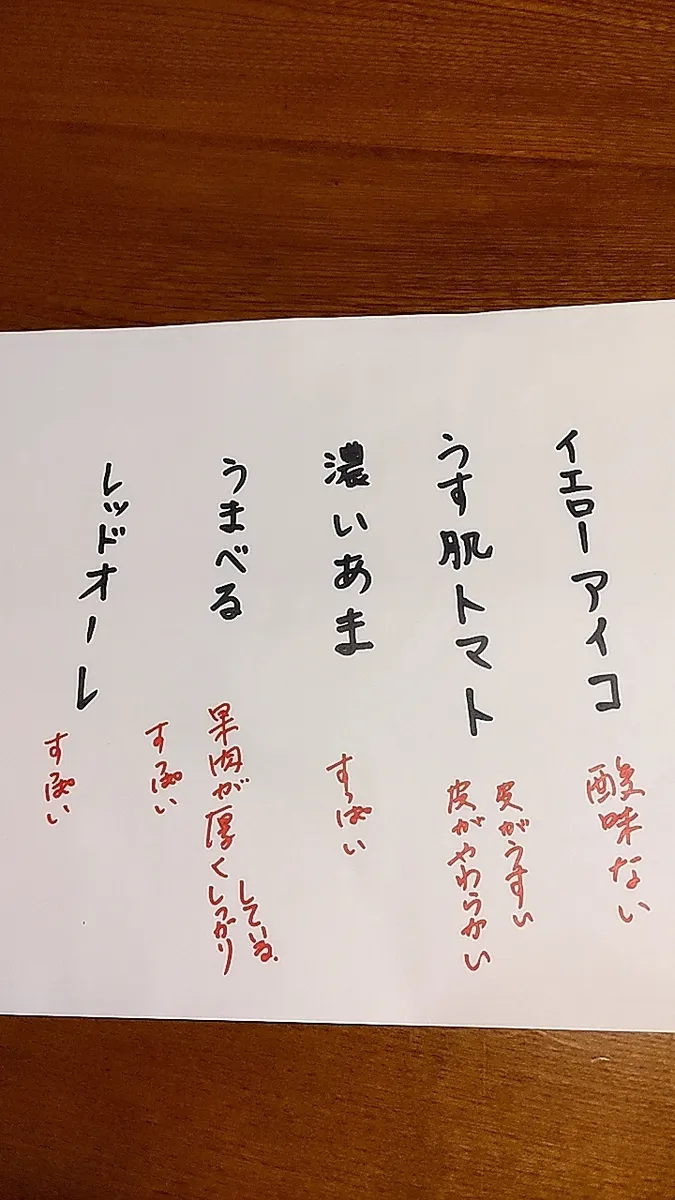 イエローアイコ
酸味ない
うす肌トマト
皮がうすい
皮がやわらかい
濃いあま
すっぱい
うまべる
果肉が厚くしっかり
している
すっぱい
レッドオーレ
すっぱい